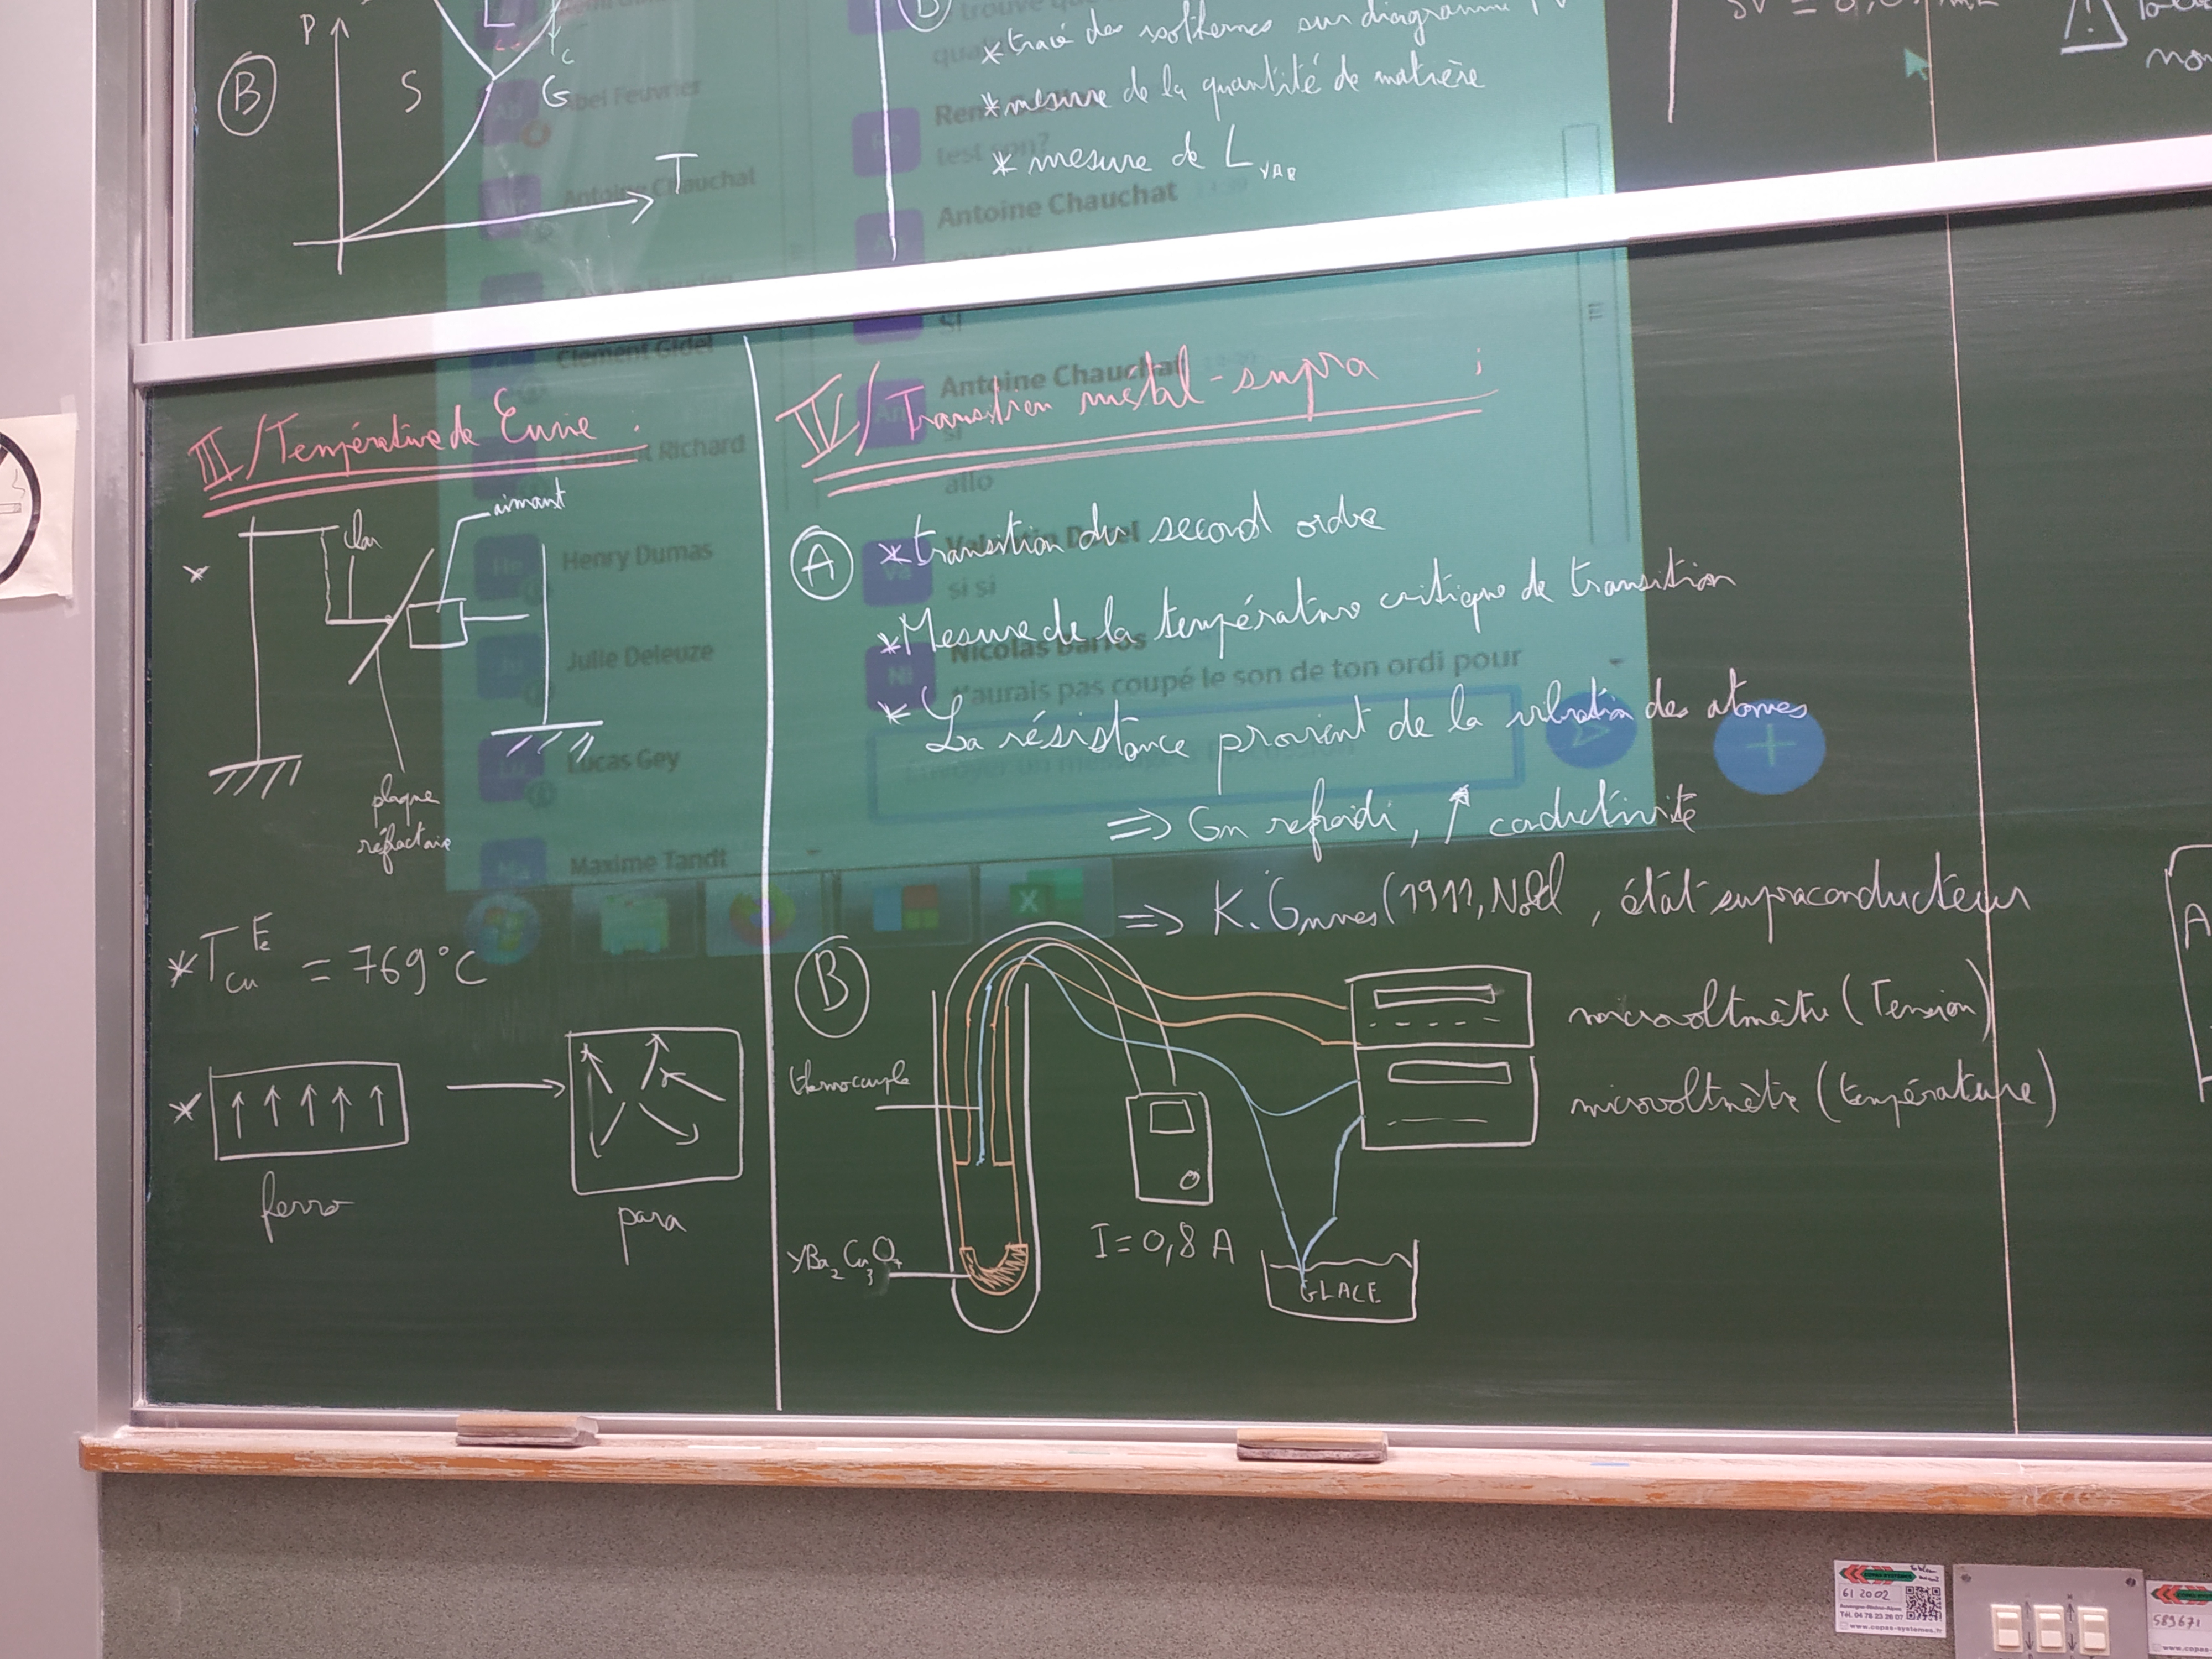 P
B
S
L
C
G
T
* tracé des isothermes sur diagramme PV
* mesure de la quantité de matière
* mesure de L VAP
III/ Température de Curie :
* clou
aimant
plaque
réfactaire
* T Fe cu = 769°C
*
ferro
para
IV/ Transition métal-supra :
A
* transition du second ordre
* Mesure de la température critique de transition
* La résistance provient de la vibration des atomes
=> On refroidi, ↑ conductivité
=> K. Onnes (1911, Nobel, état supraconducteur
B
thermocouple
YBa2Cu3O7
I = 0,8 A
GLACE
microvoltmètre (Tension)
microvoltmètre (température)
A
Abel Feuvrier
Antoine Chauchat
Clement Gidel
Clement Richard
Henry Dumas
Julie Deleuze
Lucas Gey
Maxime Tandt
test son?
Antoine Chauchat
si
Antoine Chauchat
si
allo
si si
Nicolas Barros
t'aurais pas coupé le son de ton ordi pour
61 2002
Tél. 04 76 23 26 07
www.copas-systemes.fr
589671